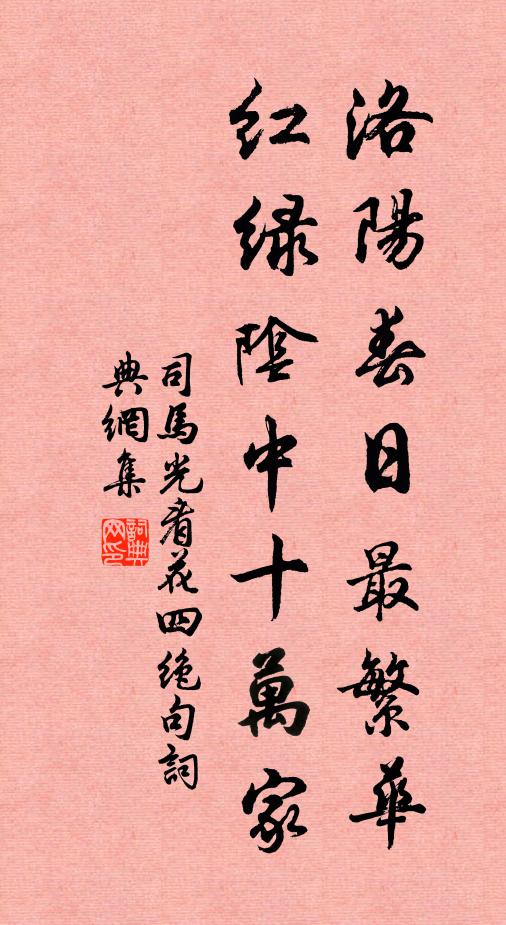 洛陽春日最繁華
紅綠陰中十萬家
司馬光看花四绝句詞
典網集
詞典
网印